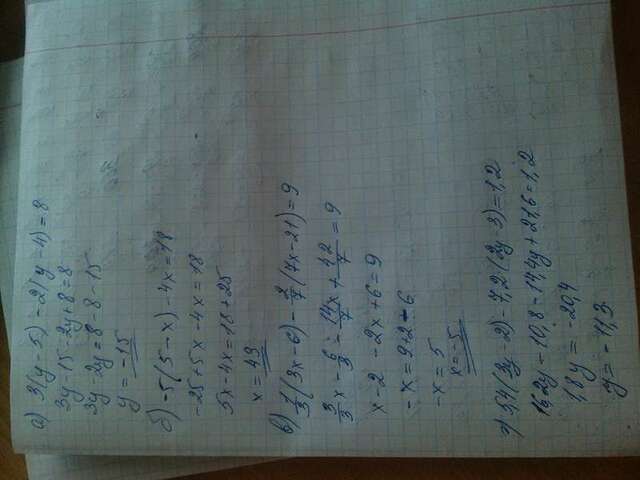 а) 3(y-5) - 2(y-4) = 8
3y - 15 - 2y + 8 = 8
3y - 2y = 8 - 8 - 15
y = -15
б) -5(5-x) - 4x = 18
-25 + 5x - 4x = 18
5x - 4x = 18 + 25
x = 43
в) 1/3(3x-6) - 2/7(7x-21) = 9
3/3x - 6/3 - 14x/7 + 42/7 = 9
x - 2 - 2x + 6 = 9
-x = 9 + 2 - 6
-x = 5
x = -5
г) 5,4(3y-2) - 7,2(2y-3) = 1,2
16,2y - 10,8 - 14,4y + 21,6 = 1,2
1,8y = -20,4
y = -11,3